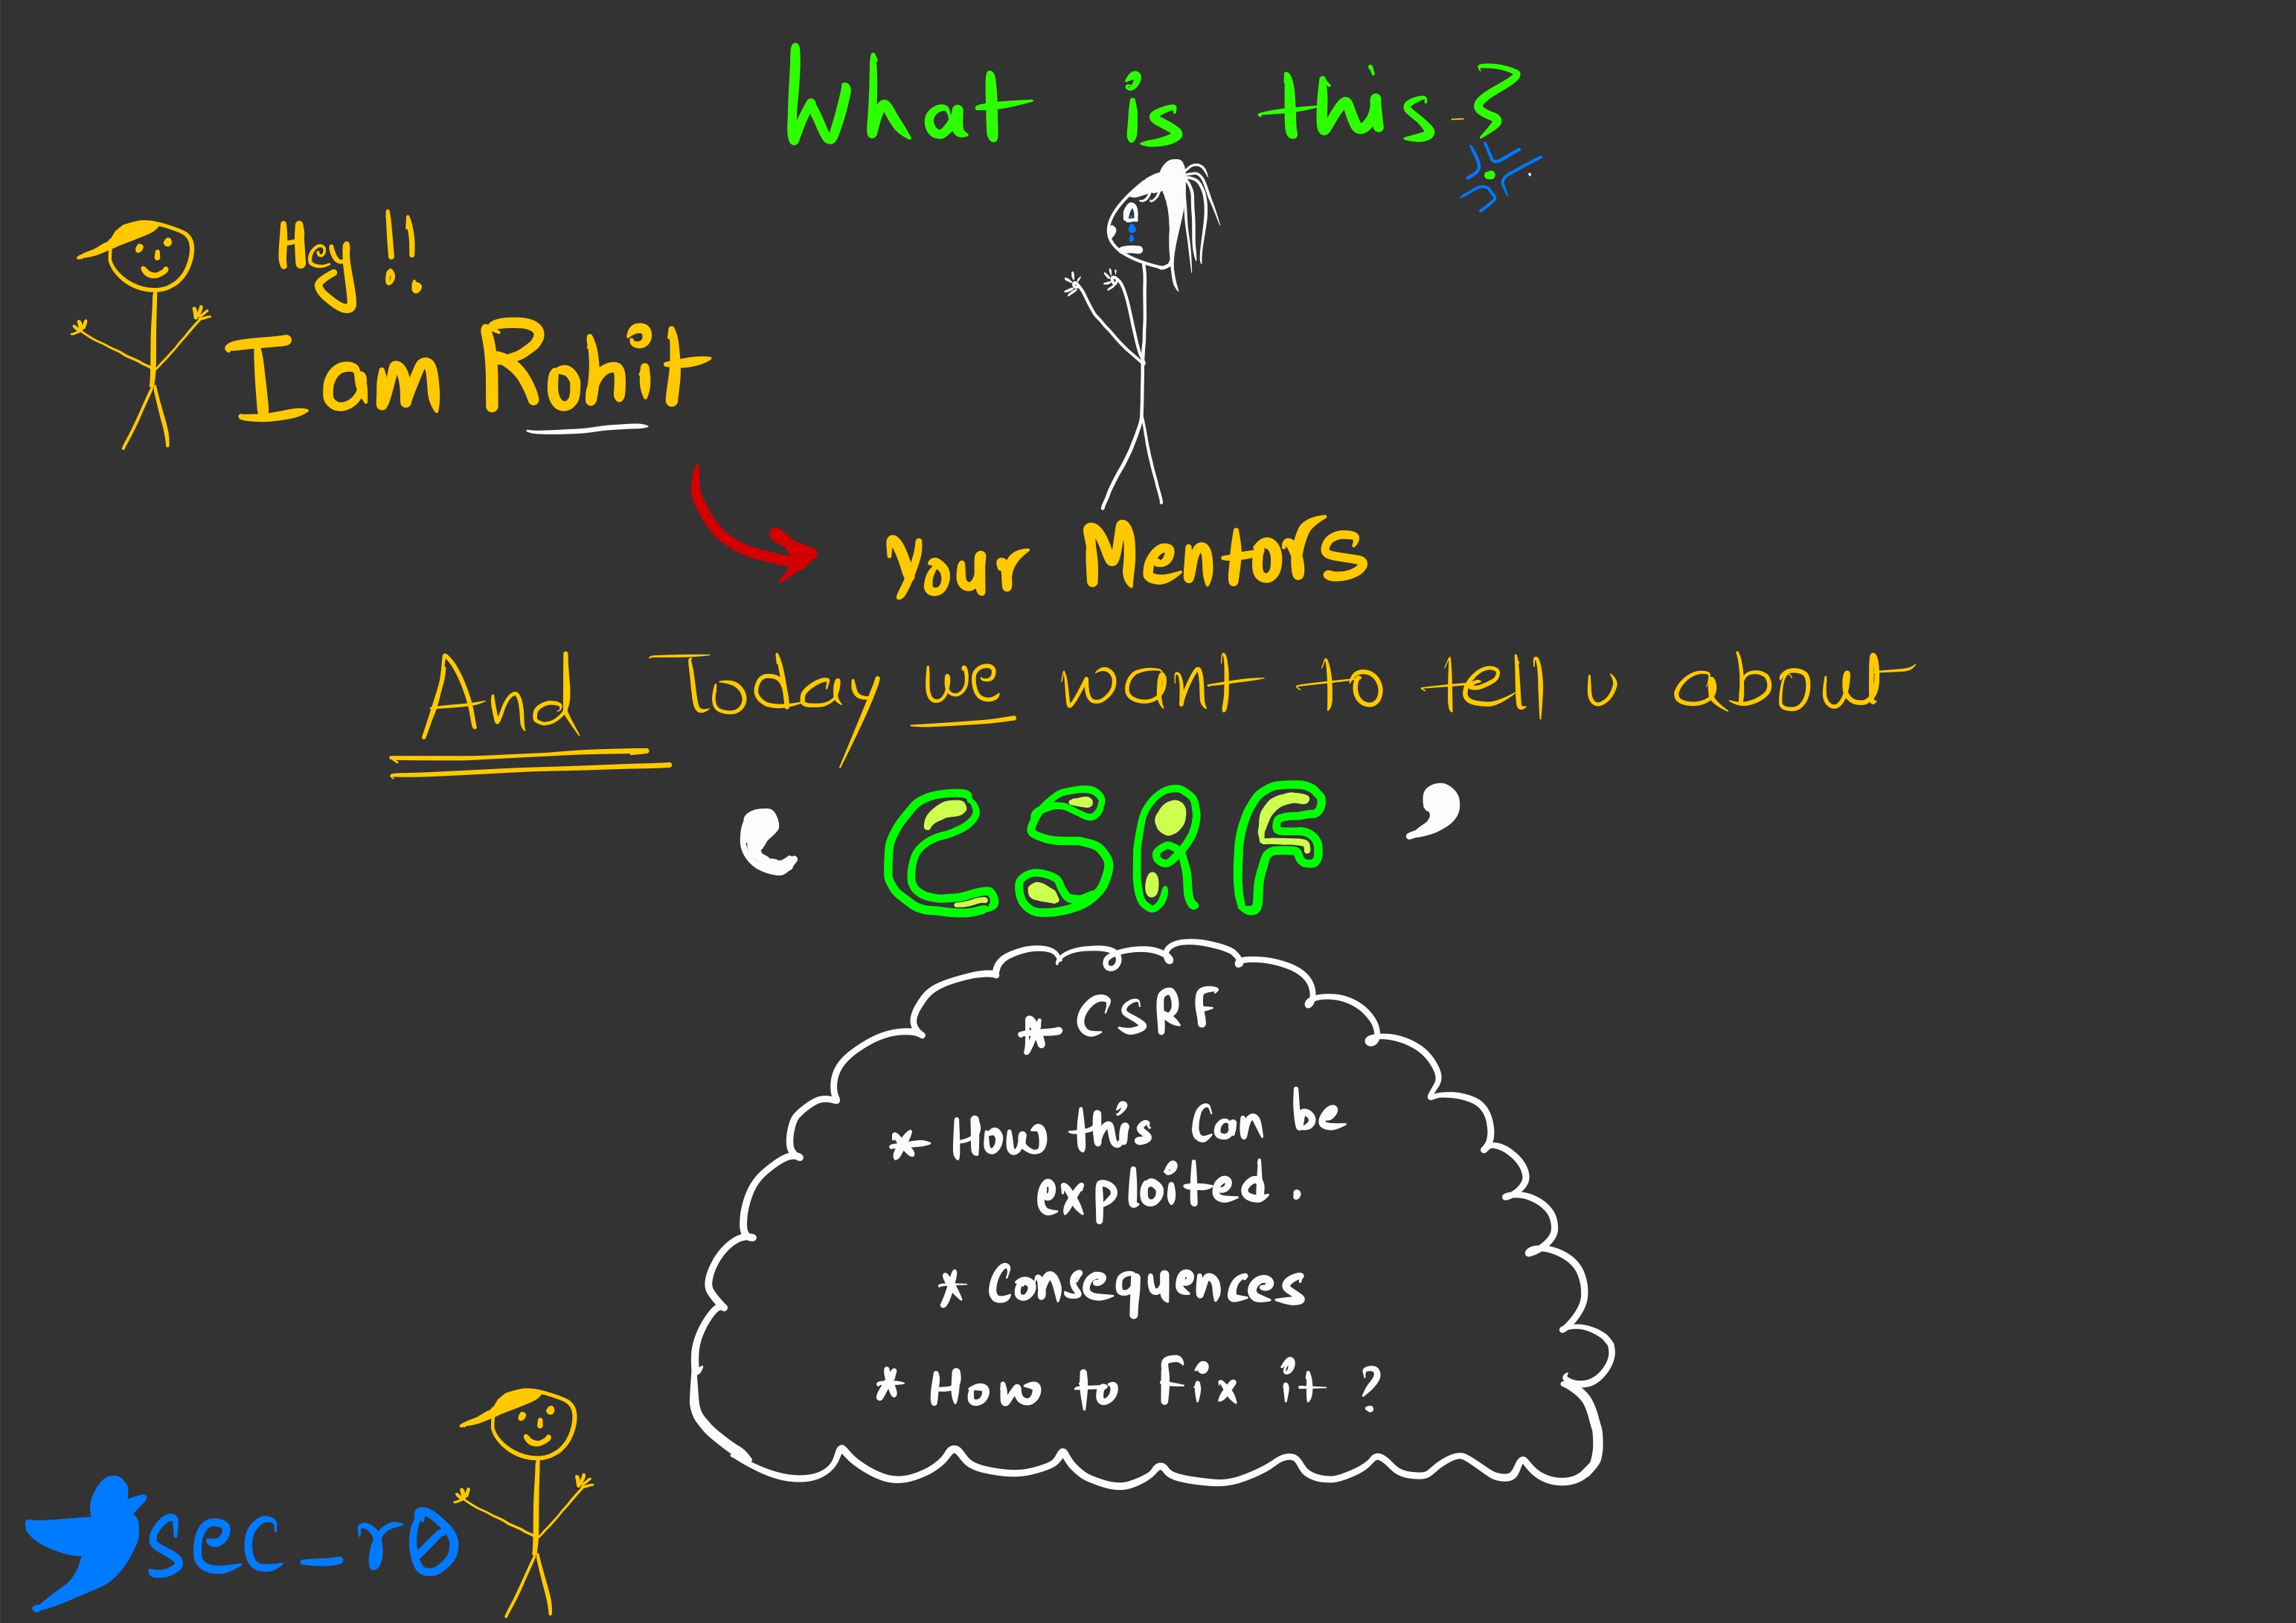 What is this ?
Hey !!
I am Rohit
Your Mentors
And Today we want to tell u about
‘ CSRF ’
* CSRF
* How this can be
exploited.
* Consequences
* How to Fix it ?
sec_r0